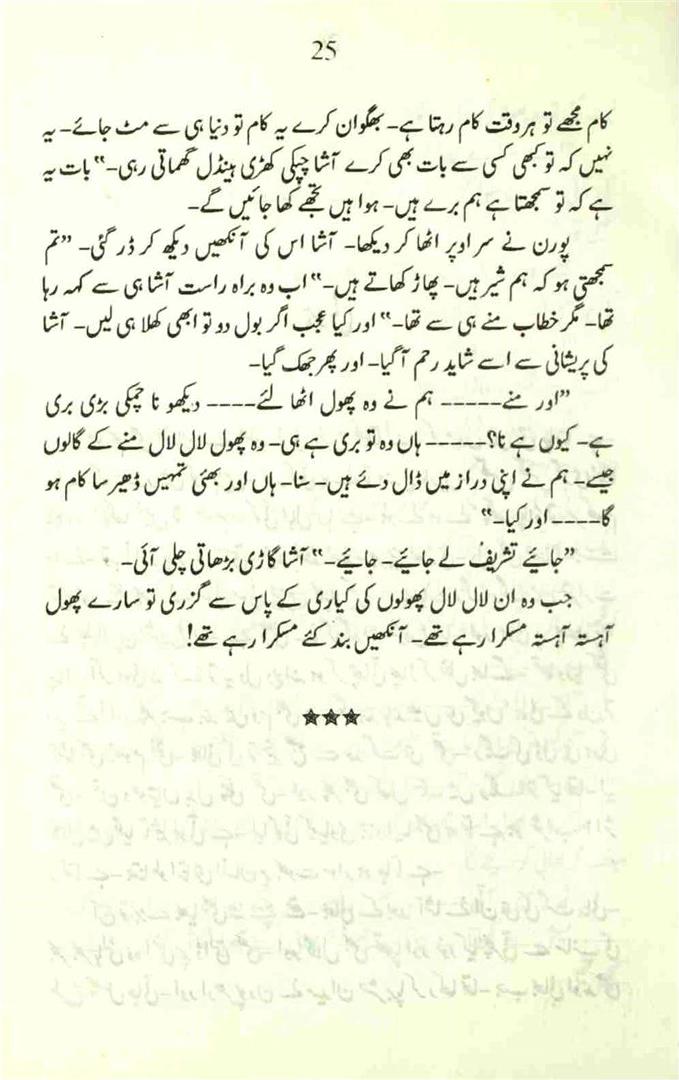 25
کام مجھے تو ہر وقت کام رہتا ہے۔ بھگوان کرے یہ کام تو دنیا ہی سے مٹ جائے۔ یہ
نہیں کہ تو کبھی کسی سے بات بھی کرے آشا چپکی کھڑی ہینڈل گھماتی رہی۔“ بات یہ
ہے کہ تو سمجھتا ہے ہم برے ہیں۔ ہوا ہیں تجھے کھا جائیں گے۔
پورن نے سر اوپر اٹھا کر دیکھا۔ آشا اس کی آنکھیں دیکھ کر ڈر گئی۔ ”تم
سمجھتی ہو کہ ہم شیر ہیں۔ پھاڑ کھاتے ہیں۔“ اب وہ براہ راست آشا ہی سے کہہ رہا
تھا۔ مگر خطاب منے ہی سے تھا۔“ اور کیا عجب اگر بول دو تو ابھی کھلا ہی لیں۔ آشا
کی پریشانی سے اسے شاید رحم آ گیا۔ اور پھر جھک گیا۔
”اور منے۔۔۔۔۔ ہم نے وہ پھول اٹھا لئے۔۔۔۔ دیکھو نا چمکی بڑی بری
ہے۔ کیوں ہے نا؟۔۔۔۔۔ ہاں وہ تو بری ہے ہی۔ وہ پھول لال لال منے کے گالوں
جیسے۔ ہم نے اپنی دراز میں ڈال دئے ہیں۔ سنا۔ ہاں اور بھئی تمہیں ڈھیر سا کام ہو
گا۔۔۔۔ اور کیا۔“
”جائیے تشریف لے جائیے۔ جائیے۔“ آشا گاڑی بڑھاتی چلی آئی۔
جب وہ ان لال لال پھولوں کی کیاری کے پاس سے گزری تو سارے پھول
آہستہ آہستہ مسکرا رہے تھے۔ آنکھیں بند کئے مسکرا رہے تھے!